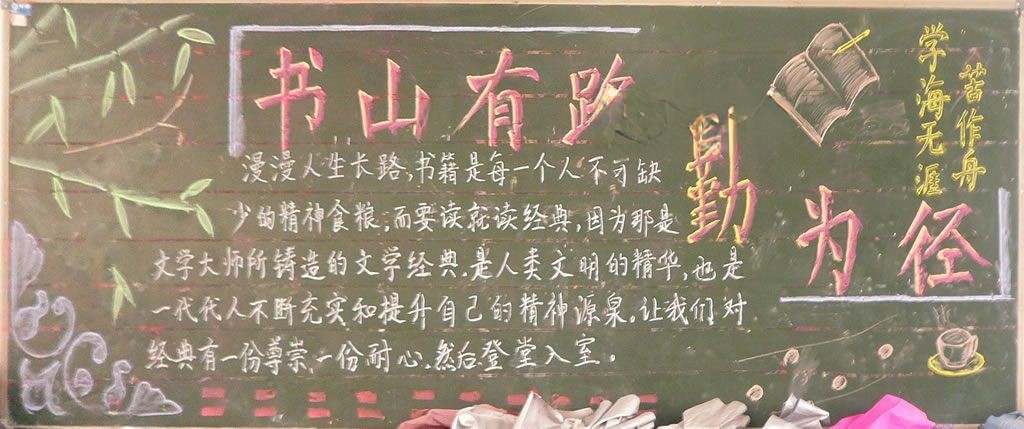 书山有路
勤
为径
学海无涯
苦作舟
漫漫人生长路,书籍是每一个人不可缺
少的精神食粮;而要读就读经典,因为那是
文学大师所铸造的文学经典.是人类文明的精华,也是
一代代人不断充实和提升自己的精神源泉。让我们对
经典有一份尊崇,一份耐心.然后登堂入室。